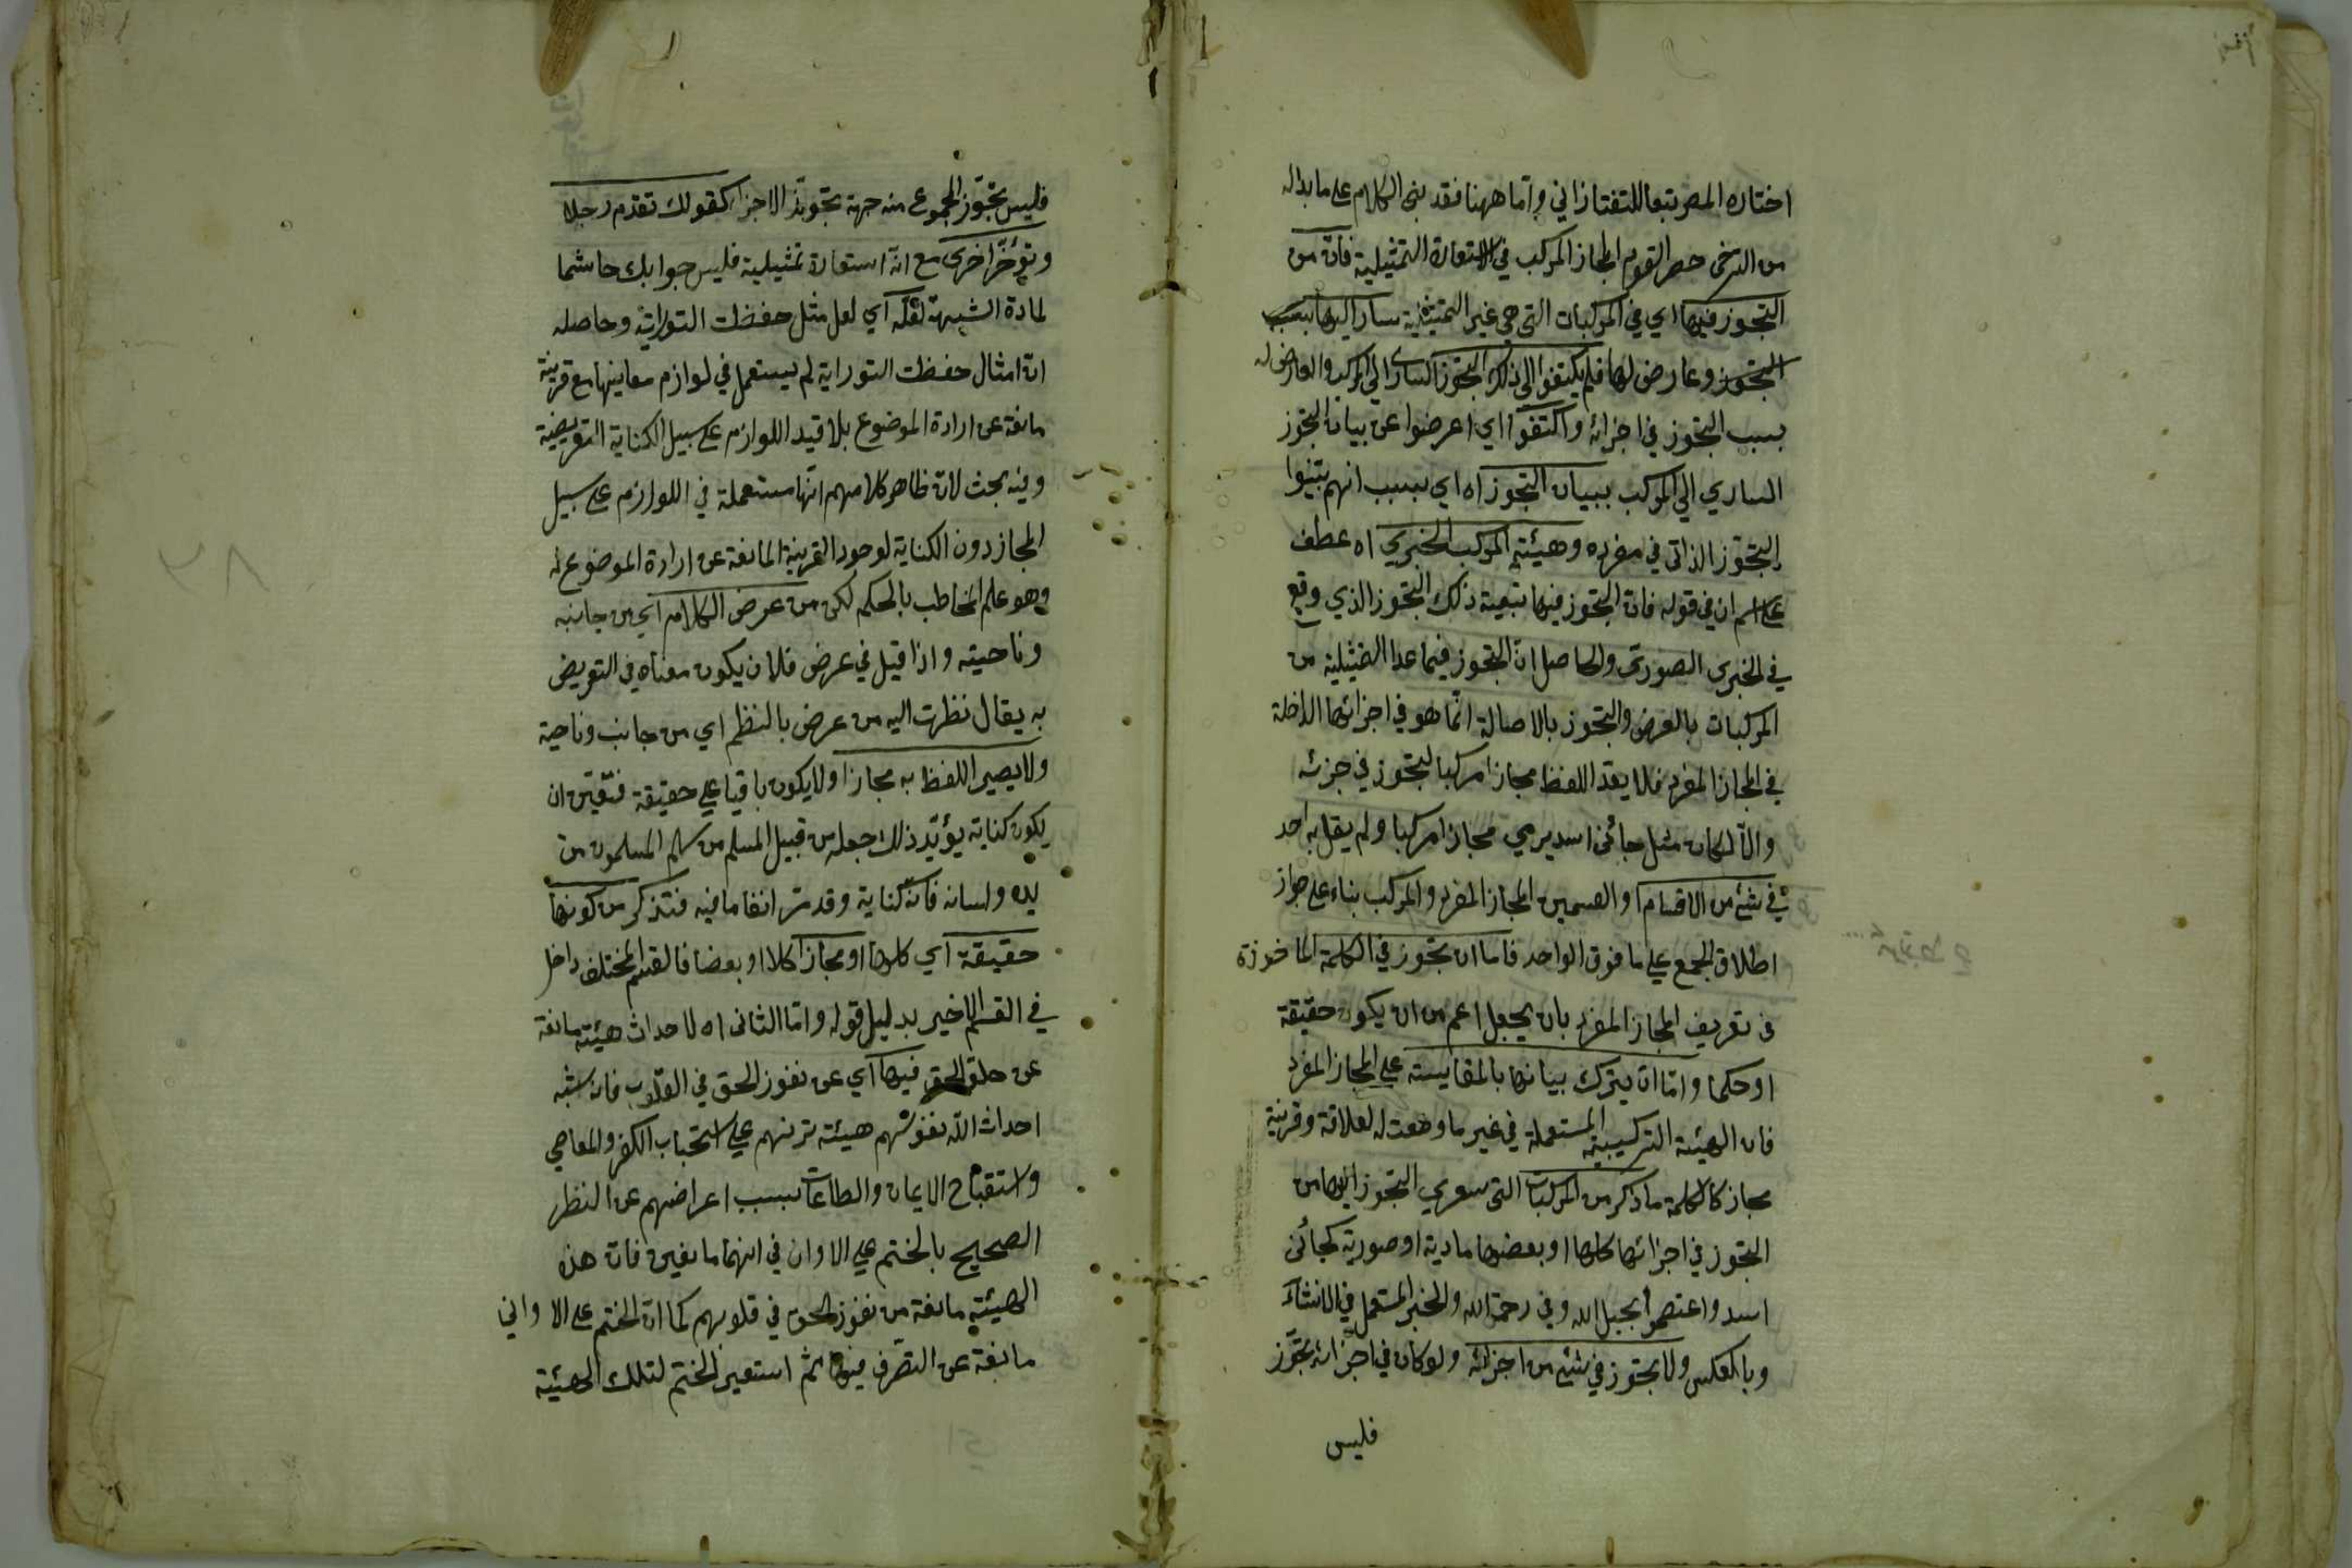 اختاره المصر تبعا للتفتازاني واما ههنا فقد بنى الكلام على ما بداله
من الترخى حصر القوم المجاز المركب في الاستعارة التمثيلية فان من
التجوز فيها اي في المركبات التي هي غير التمثيلية سار اليها بسبب
التجوز وعارض لها فلم يلتفتوا الى ذلك التجوز السارى الى المركب والعارض له
بسبب التجوز في اجزائه واكتفوا اي اعرضوا عن بيان التجوز
الساري الي المركب ببيان التجوز اه اي بسبب انهم بينوا
التجوز الذاتي في مفرده وهيئته المركب الخبري اه عطف
على اسم ان في قوله فان التجوز فيها بتبعية ذلك التجوز الذي وقع
في الخبرى الصورى والحاصل ان التجوز فيما عدا التمثيلية من
المركبات بالعرض والتجوز بالاصالة انما هو في اجزائها الداخلة
في المجاز المفرد فلا يعد اللفظ مجازا مركبا لتجوز في جزئه
والا لكان مثل جائنى اسد يرمي مجازا مركبا ولم يقل به احد
في شئ من الاقسام او القسمين المجاز المفرد والمركب بناء على جواز
اطلاق الجمع علي ما فوق الواحد فاما ان تجوز في الكلمة الماخوذة
في تعريف المجاز المفرد بان يجعل اعم من ان يكون حقيقة
او حكما واما ان يترك بيانها بالمقايسة على المجاز المفرد
فان الهيئة التركيبية المستعملة في غير ما وضعت له لعلاقة وقرينة
مجاز كالكلمة ما ذكر من المركبات التى سري التجوز اليها من
التجوز في اجزائها كلها او بعضها مادية او صورية كجائنى
اسد واعتصموا بحبل الله وفي رحمة الله والخبر المستعمل في الانشاء
وبالعكس ولا تجوز في شئ من اجزائه ولو كان في اجزائه تجوز
فليس
فليس تجوز المجموع من جهة تجويز الاجزاء كقولك تقدم رجلا
وتؤخر اخرى مع انه استعارة تمثيلية فليس جوابك حاسما
لمادة الشبهة لعله اي لعل مثل حفظت التوراية وحاصله
ان امثال حفظت التوراية لم يستعمل في لوازم معاينها مع قرينة
مانعة عن ارادة الموضوع بلا قيد اللوازم على سبيل الكناية التعريضية
وفيه بحث لان ظاهر كلامهم انها مستعملة في اللوازم على سبيل
المجاز دون الكناية لوجود القرينة المانعة عن ارادة الموضوع له
وهو علم المخاطب بالحكم لكن من عرض الكلام اي من جانبه
وناحيته واذا قيل في عرض فلان يكون معناه في التعريض
به يقال نظرت اليه من عرض بالنظم اي من جانب وناحية
ولا يصير اللفظ به مجازا ولا يكون باقيا علي حقيقة فتعين ان
يكون كناية يؤيد ذلك جعله من قبيل المسلم من سلم المسلمون من
يده ولسانه فانه كناية وقد مر انفا ما فيه فتذكر من كونها
حقيقة اي كلها او مجازا كلا او بعضا فالقسم المختلف داخل
في القسم الاخير بدليل قوله واما الثانى اه لاحداث هيئته مانعة
عن فيها اي عن نفوز الحق في القلوب فان شبه
احداث الله نفوسهم هيئته ترنهم علي استحباب الكفر والمعاصي
واستقباح الايمان والطاعات بسبب اعراضهم عن النظر
الصحيح بالختم علي الاوان في انهما مانعين فان هذه
الهيئة مانعة من نفوز الحق في قلوبهم كما ان الختم على الاواني
مانعة عن التصرف فيها ثم استعير الختم لتلك الهيئية